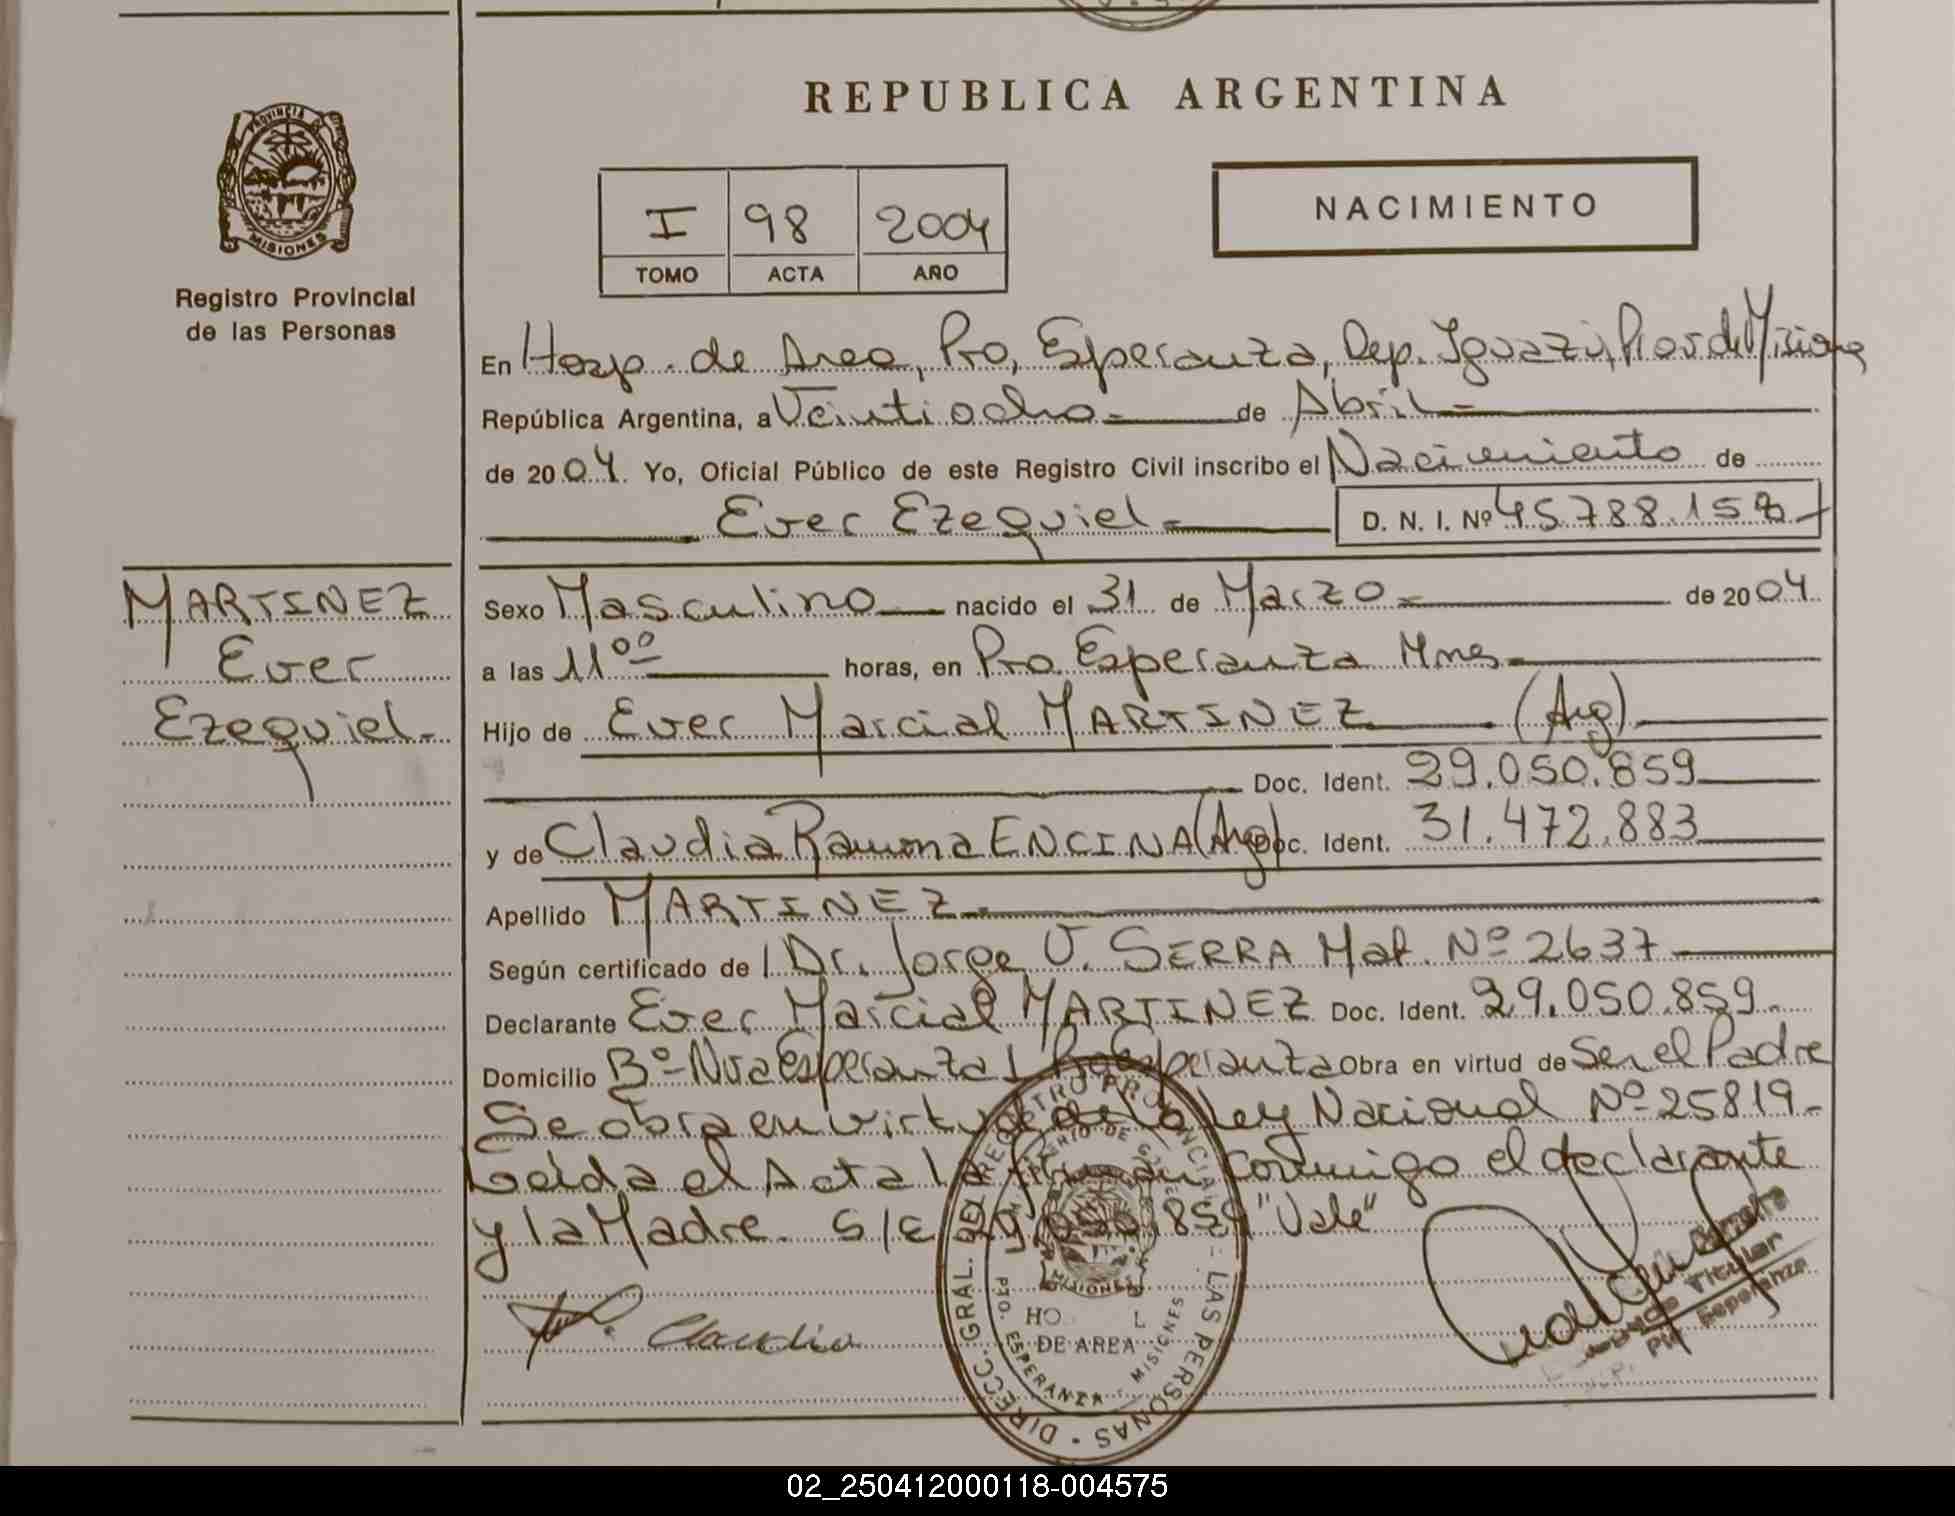 REPUBLICA ARGENTINA
PROVINCIA DE
MISIONES
Registro Provincial
de las Personas
NACIMIENTO
I 98 2004
TOMO ACTA AÑO
En Hosp. de Area, Pto, Esperanza, Dep. Iguazú, Prov de Misiones
República Argentina, a Veintiocho de Abril
de 2004. Yo, Oficial Público de este Registro Civil inscribo el Nacimiento de
Ever Ezequiel D. N. I. Nº 45.788.15
MARTINEZ
Ever
Ezequiel
Sexo Masculino nacido el 31 de Marzo de 2004
a las 11ºº horas, en Pto Esperanza Mnes
Hijo de Ever Marcial MARTINEZ (Arg)
Doc. Ident. 29.050.859
y de Claudia Ramona ENCINA (Arg) Doc. Ident. 31.472.883
Apellido MARTINEZ
Según certificado de Dr. Jorge V. SERRA Mat. Nº 2637
Declarante Ever Marcial MARTINEZ Doc. Ident. 29.050.859
Domicilio Bº Nva Esperanza Pto Esperanza Obra en virtud de Ser el Padre
Se obra en virtud de la Ley Nacional Nº 25819
Leida el Acta la firman conmigo el declarante
y la Madre. S/E 29.050.859 "Vale"
Claudia
DIRECC. GRAL. DEL REGISTRO PROVINCIAL DE LAS PERSONAS
MINISTERIO DE
MISIONES
HO L
DE AREA
PTO. ESPERANZA - MISIONES
Titular
Esperanza
02_250412000118-004575